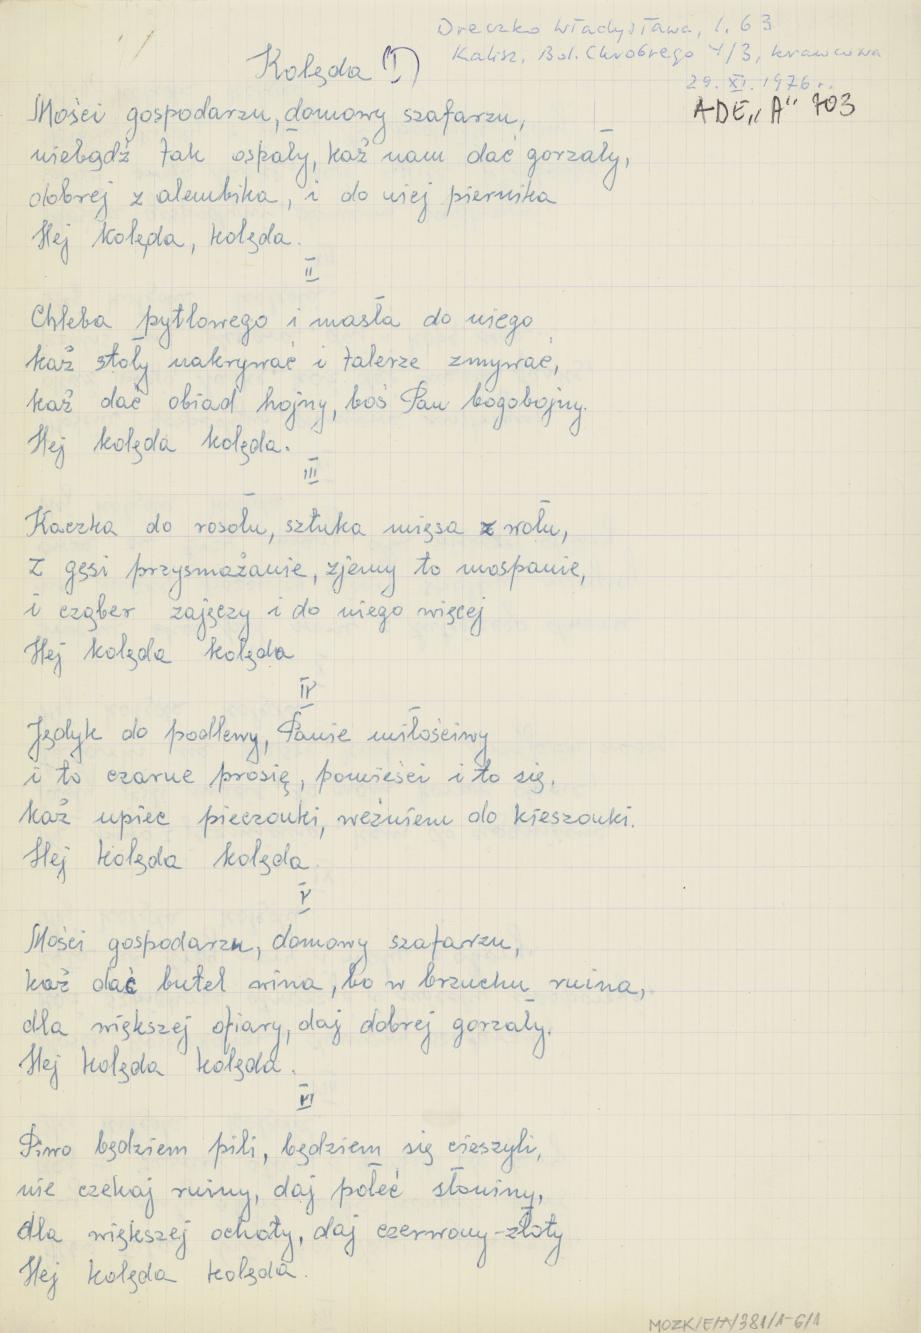 Dreczko Władysława, l. 63
Kalisz, Bol. Chrobrego 4/3, krawcowa
29. XI. 1976 r.
ADE „A" 703
Kolęda (I)
Mości gospodarzu, domowy szafarzu,
niebądź tak ospały, każ nam dać gorzały,
dobrej z alembika, i do niej piernika
Hej kolęda, kolęda.
II
Chleba pytlowego i masła do niego
każ stoły nakrywać i talerze zmywać,
każ dać obiad hojny, boś Pan bogobojny.
Hej kolęda kolęda.
III
Kaczka do rosołu, sztuka mięsa z wołu,
z gęsi przysmażanie, zjemy to mospanie,
i cząber zajęczy i do niego więcej
Hej kolęda kolęda
IV
Jędyk do podlewy, Panie miłościwy
i to czarne prosię, pomieści i to się,
każ upiec pieczonki, weźniem do kieszonki.
Hej kolęda kolęda
V
Mości gospodarzu, domowy szafarzu,
każ dać butel wina, bo w brzuchu ruina,
dla większej ofiary, daj dobrej gorzały.
Hej kolęda kolęda.
VI
Piwo będziem pili, będziem się cieszyli,
nie czekaj ruiny, daj połeć słoniny,
dla większej ochoty, daj czerwony-złoty
Hej kolęda kolęda.
MOZK/E/A/381/1-6/1